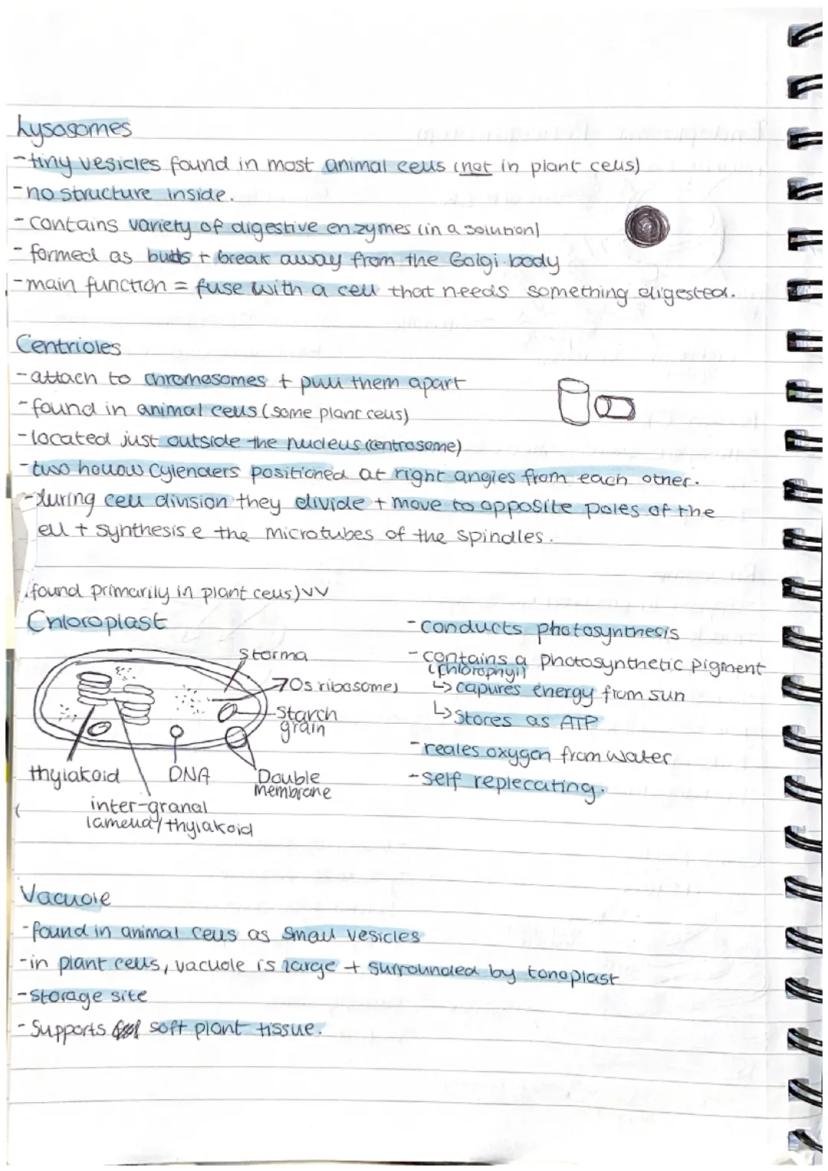 Lysosomes
-tiny vesicles found in most animal cells (not in plant cells)
-no structure inside.
-contains variety of digestive enzymes (in a solution)
-formed as buds + break away from the Golgi body
-main function = fuse with a cell that needs something digested.
Centrioles
-attach to chromosomes + pull them apart
-found in animal cells (some plant cells)
-located just outside the nucleus (centrosome)
-two hollow cylenders positioned at right angles from each other.
-during cell division they divide + move to opposite poles of the
ell + synthesise the microtubes of the spindles.
found primarily in plant cells)vv
Chloroplast
storma
70s ribosomes
starch
grain
thylakoid
DNA
Double
membrane
inter-granal
lamella/thylakoid
-conducts photosynthesis
-contains a photosynthetic pigment
(chlorophyll)
↳capures energy from sun
↳stores as ATP
-reales oxygen from water
-self replecating.
Vacuole
-found in animal cells as small vesicles
-in plant cells, vacuole is large + surrounded by tonoplast
-storage site
-supports soft plant tissue.